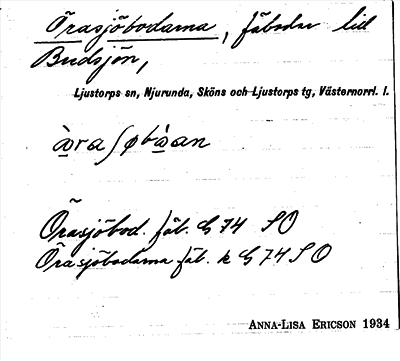 Örasjöbodarna, fäbodar till
Budsjön,
Ljustorps sn, Njurunda, Sköns och Ljustorps tg, Västernorrl. l.
Örasjöbod. fäb. G 74 SO
Örasjöbodarna fäb. k G 74 SO
ANNA-LISA ERICSON 1934